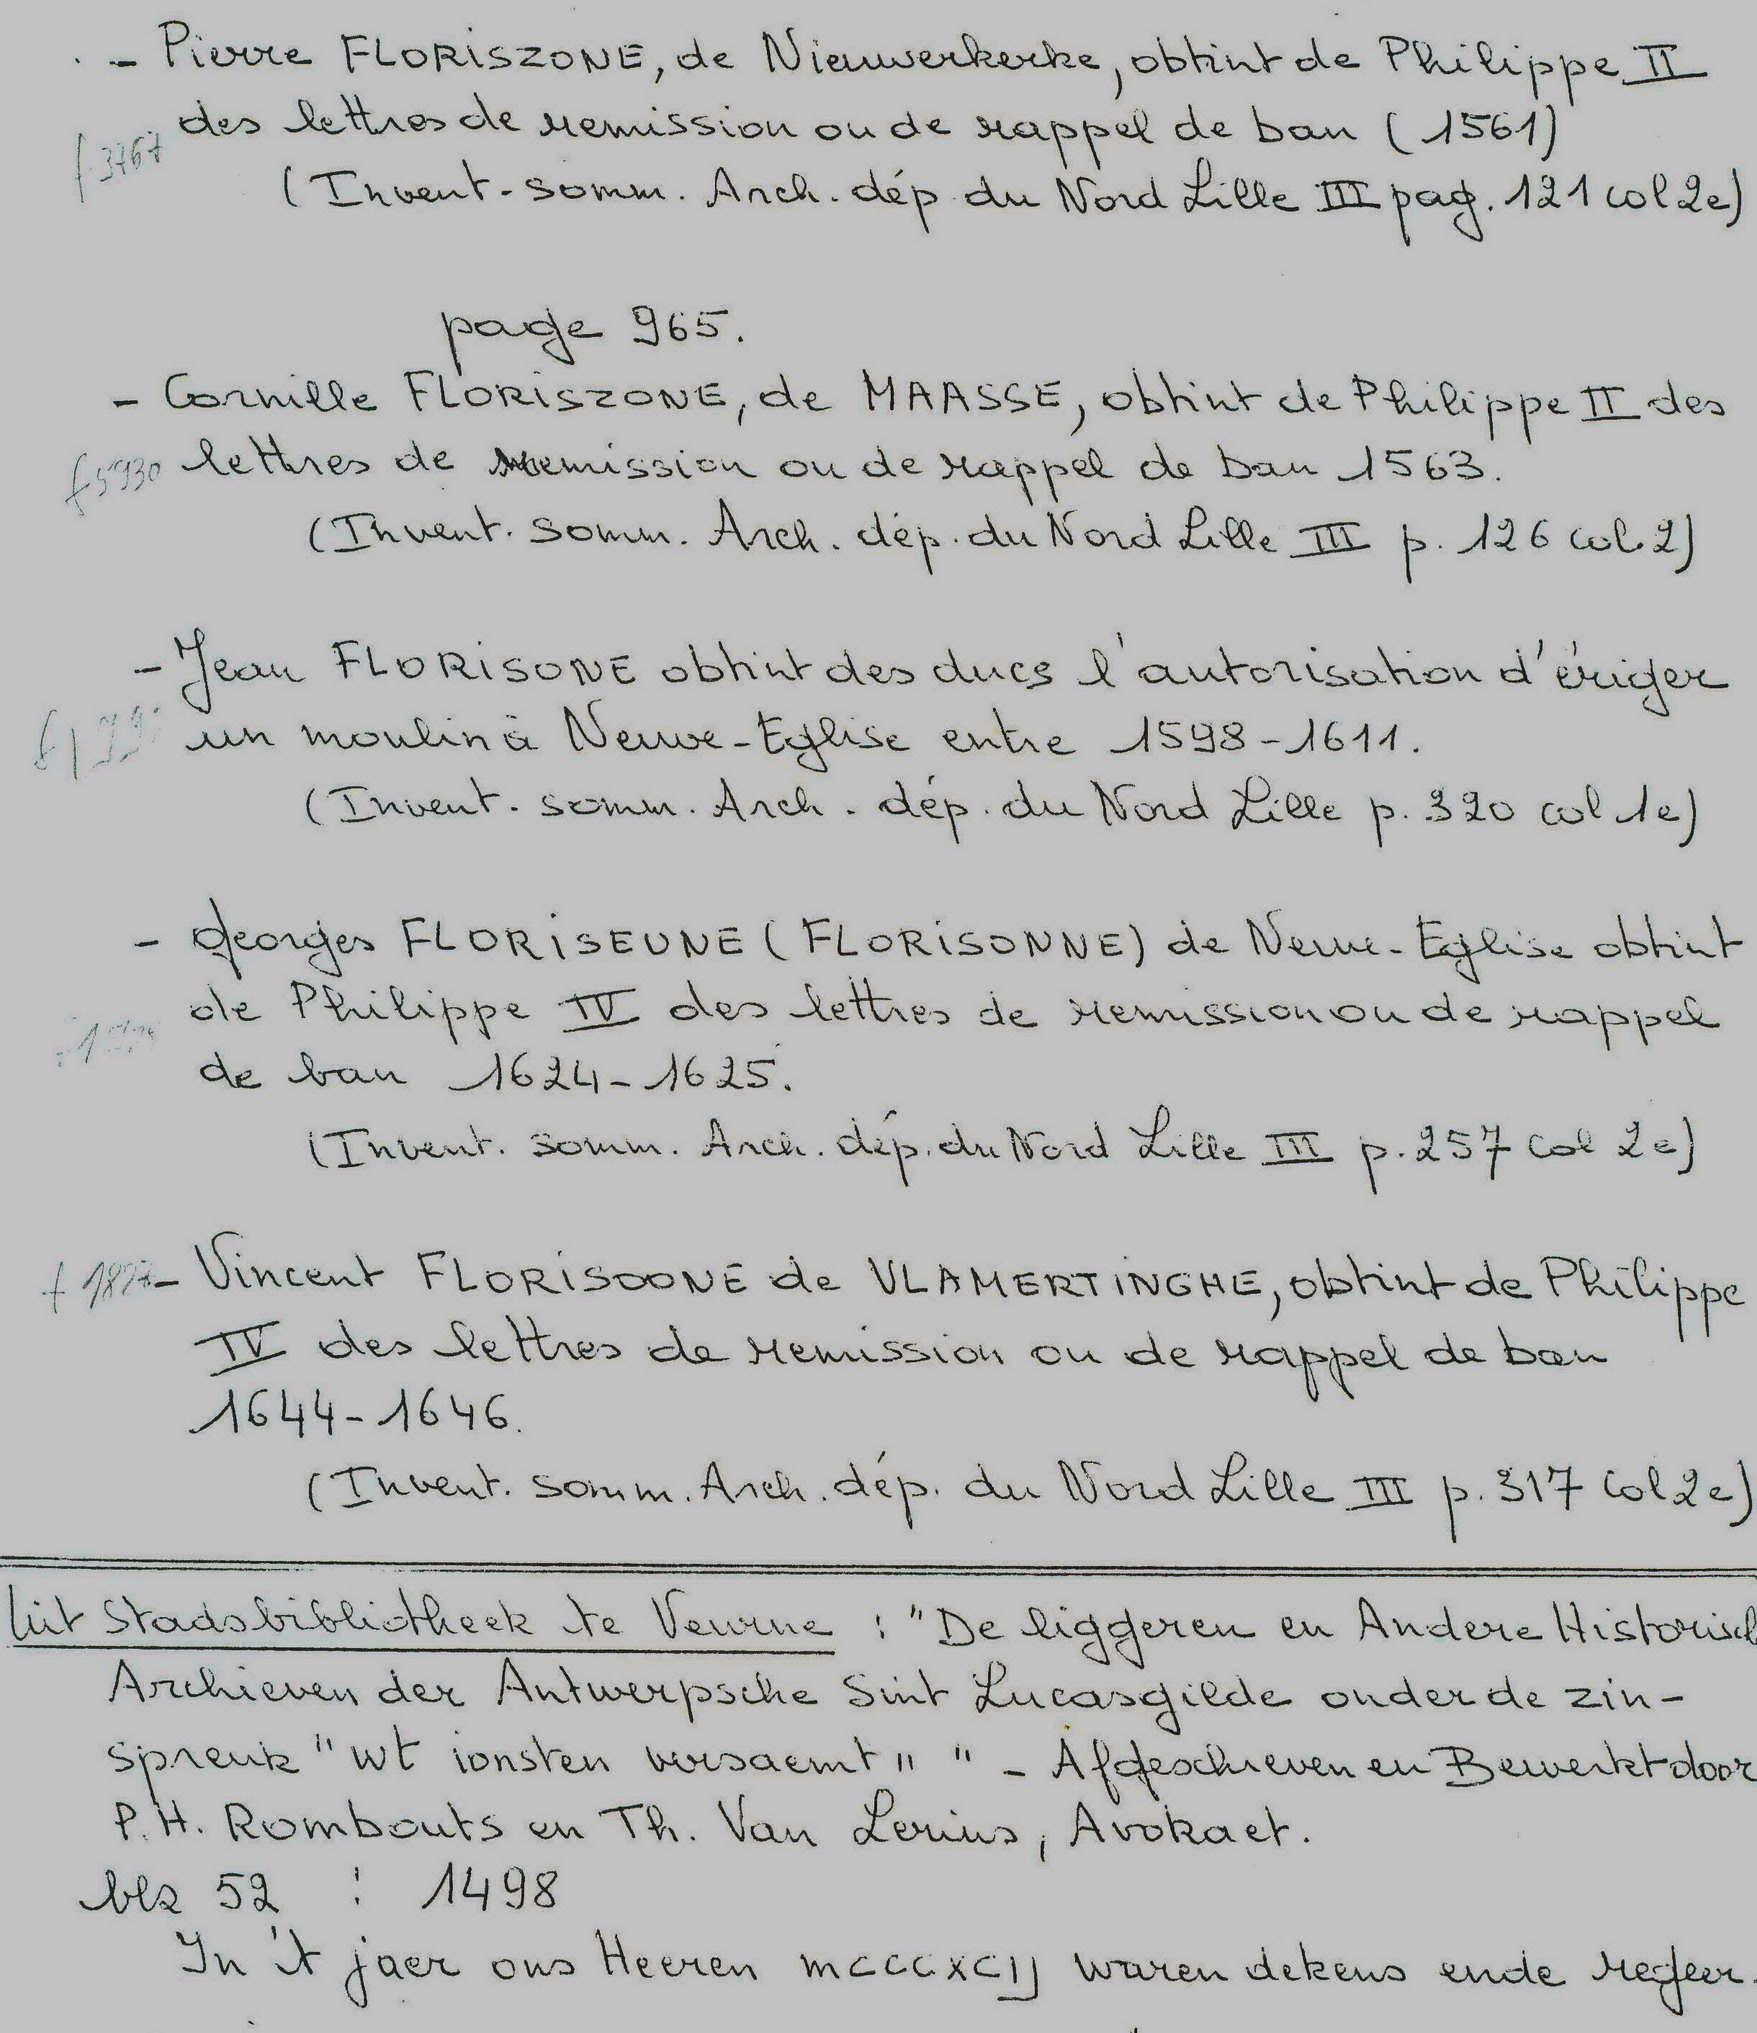 - Pierre FLORISZONE, de Nieuwerkerke, obtint de Philippe II
f.3767 des lettres de remission ou de rappel de ban (1561)
(Invent-somm. Arch. dép du Nord Lille III pag. 121 col 2e)
page 965.
- Cornille FLORISZONE, de MAASSE, obtint de Philippe II des
f5930 lettres de remission ou de rappel de ban 1563.
(Invent. somm. Arch. dép. du Nord Lille III p. 126 col. 2)
- Jean FLORISONE obtint des ducs l'autorisation d'ériger
un moulin à Neuve-Eglise entre 1598-1611.
(Invent. somm. Arch. dép. du Nord Lille p. 320 col 1e)
- Georges FLORISEUNE (FLORISONNE) de Neuve-Eglise obtint
de Philippe IV des lettres de remission ou de rappel
de ban 1624-1625.
(Invent. somm. Arch. dép. du Nord Lille III p. 257 col 2e)
- Vincent FLORISOONE de VLAMERTINGHE, obtint de Philippe
IV des lettres de remission ou de rappel de ban
1644-1646.
(Invent. somm. Arch. dép. du Nord Lille III p. 317 col 2e)
Uit Stadsbibliotheek te Veurne : "De liggeren en Andere Historisch
Archieven der Antwerpsche Sint Lucasgilde onder de zin-
spreuk "wt ionsten versaemt" " - Afgeschreven en Bewerkt door
P.H. Rombouts en Th. Van Lerius, Avokaet.
blz 52 : 1498
In 't jaer ons Heeren mcccxcij waren dekens ende regeer.